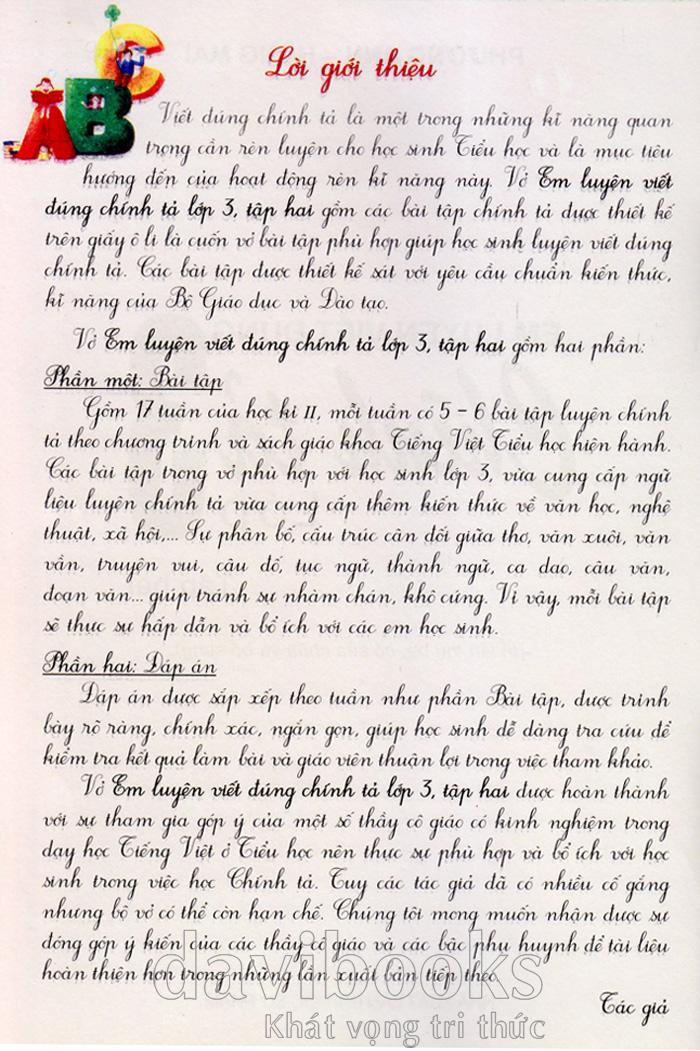 Lời giới thiệu
Viết đúng chính tả là một trong những kĩ năng quan
trọng cần rèn luyện cho học sinh Tiểu học và là mục tiêu
hướng đến của hoạt động rèn kĩ năng này. Vở Em luyện viết
đúng chính tả lớp 3, tập hai gồm các bài tập chính tả được thiết kế
trên giấy ô li là cuốn vở bài tập phù hợp giúp học sinh luyện viết đúng
chính tả. Các bài tập được thiết kế sát với yêu cầu chuẩn kiến thức,
kĩ năng của Bộ Giáo dục và Đào tạo.
Vở Em luyện viết đúng chính tả lớp 3, tập hai gồm hai phần:
Phần một: Bài tập
Gồm 17 tuần của học kì II, mỗi tuần có 5 - 6 bài tập luyện chính
tả theo chương trình và sách giáo khoa Tiếng Việt Tiểu học hiện hành.
Các bài tập trong vở phù hợp với học sinh lớp 3, vừa cung cấp ngữ
liệu luyện chính tả vừa cung cấp thêm kiến thức về văn học, nghệ
thuật, xã hội,... Sự phân bố, cấu trúc cân đối giữa thơ, văn xuôi, văn
vần, truyện vui, câu đố, tục ngữ, thành ngữ, ca dao, câu văn,
đoạn văn... giúp tránh sự nhàm chán, khô cứng. Vì vậy, mỗi bài tập
sẽ thực sự hấp dẫn và bổ ích với các em học sinh.
Phần hai: Đáp án
Đáp án được sắp xếp theo tuần như phần Bài tập, được trình
bày rõ ràng, chính xác, ngắn gọn, giúp học sinh dễ dàng tra cứu để
kiểm tra kết quả làm bài và giáo viên thuận lợi trong việc tham khảo.
Vở Em luyện viết đúng chính tả lớp 3, tập hai được hoàn thành
với sự tham gia góp ý của một số thầy cô giáo có kinh nghiệm trong
dạy học Tiếng Việt ở Tiểu học nên thực sự phù hợp và bổ ích với học
sinh trong việc học Chính tả. Tuy các tác giả đã có nhiều cố gắng
nhưng bộ vở có thể còn hạn chế. Chúng tôi mong muốn nhận được sự
đóng góp ý kiến của các thầy cô giáo và các bậc phụ huynh để tài liệu
hoàn thiện hơn trong những lần xuất bản tiếp theo.
davibooks
Tác giả
Khát vọng tri thức
ABC